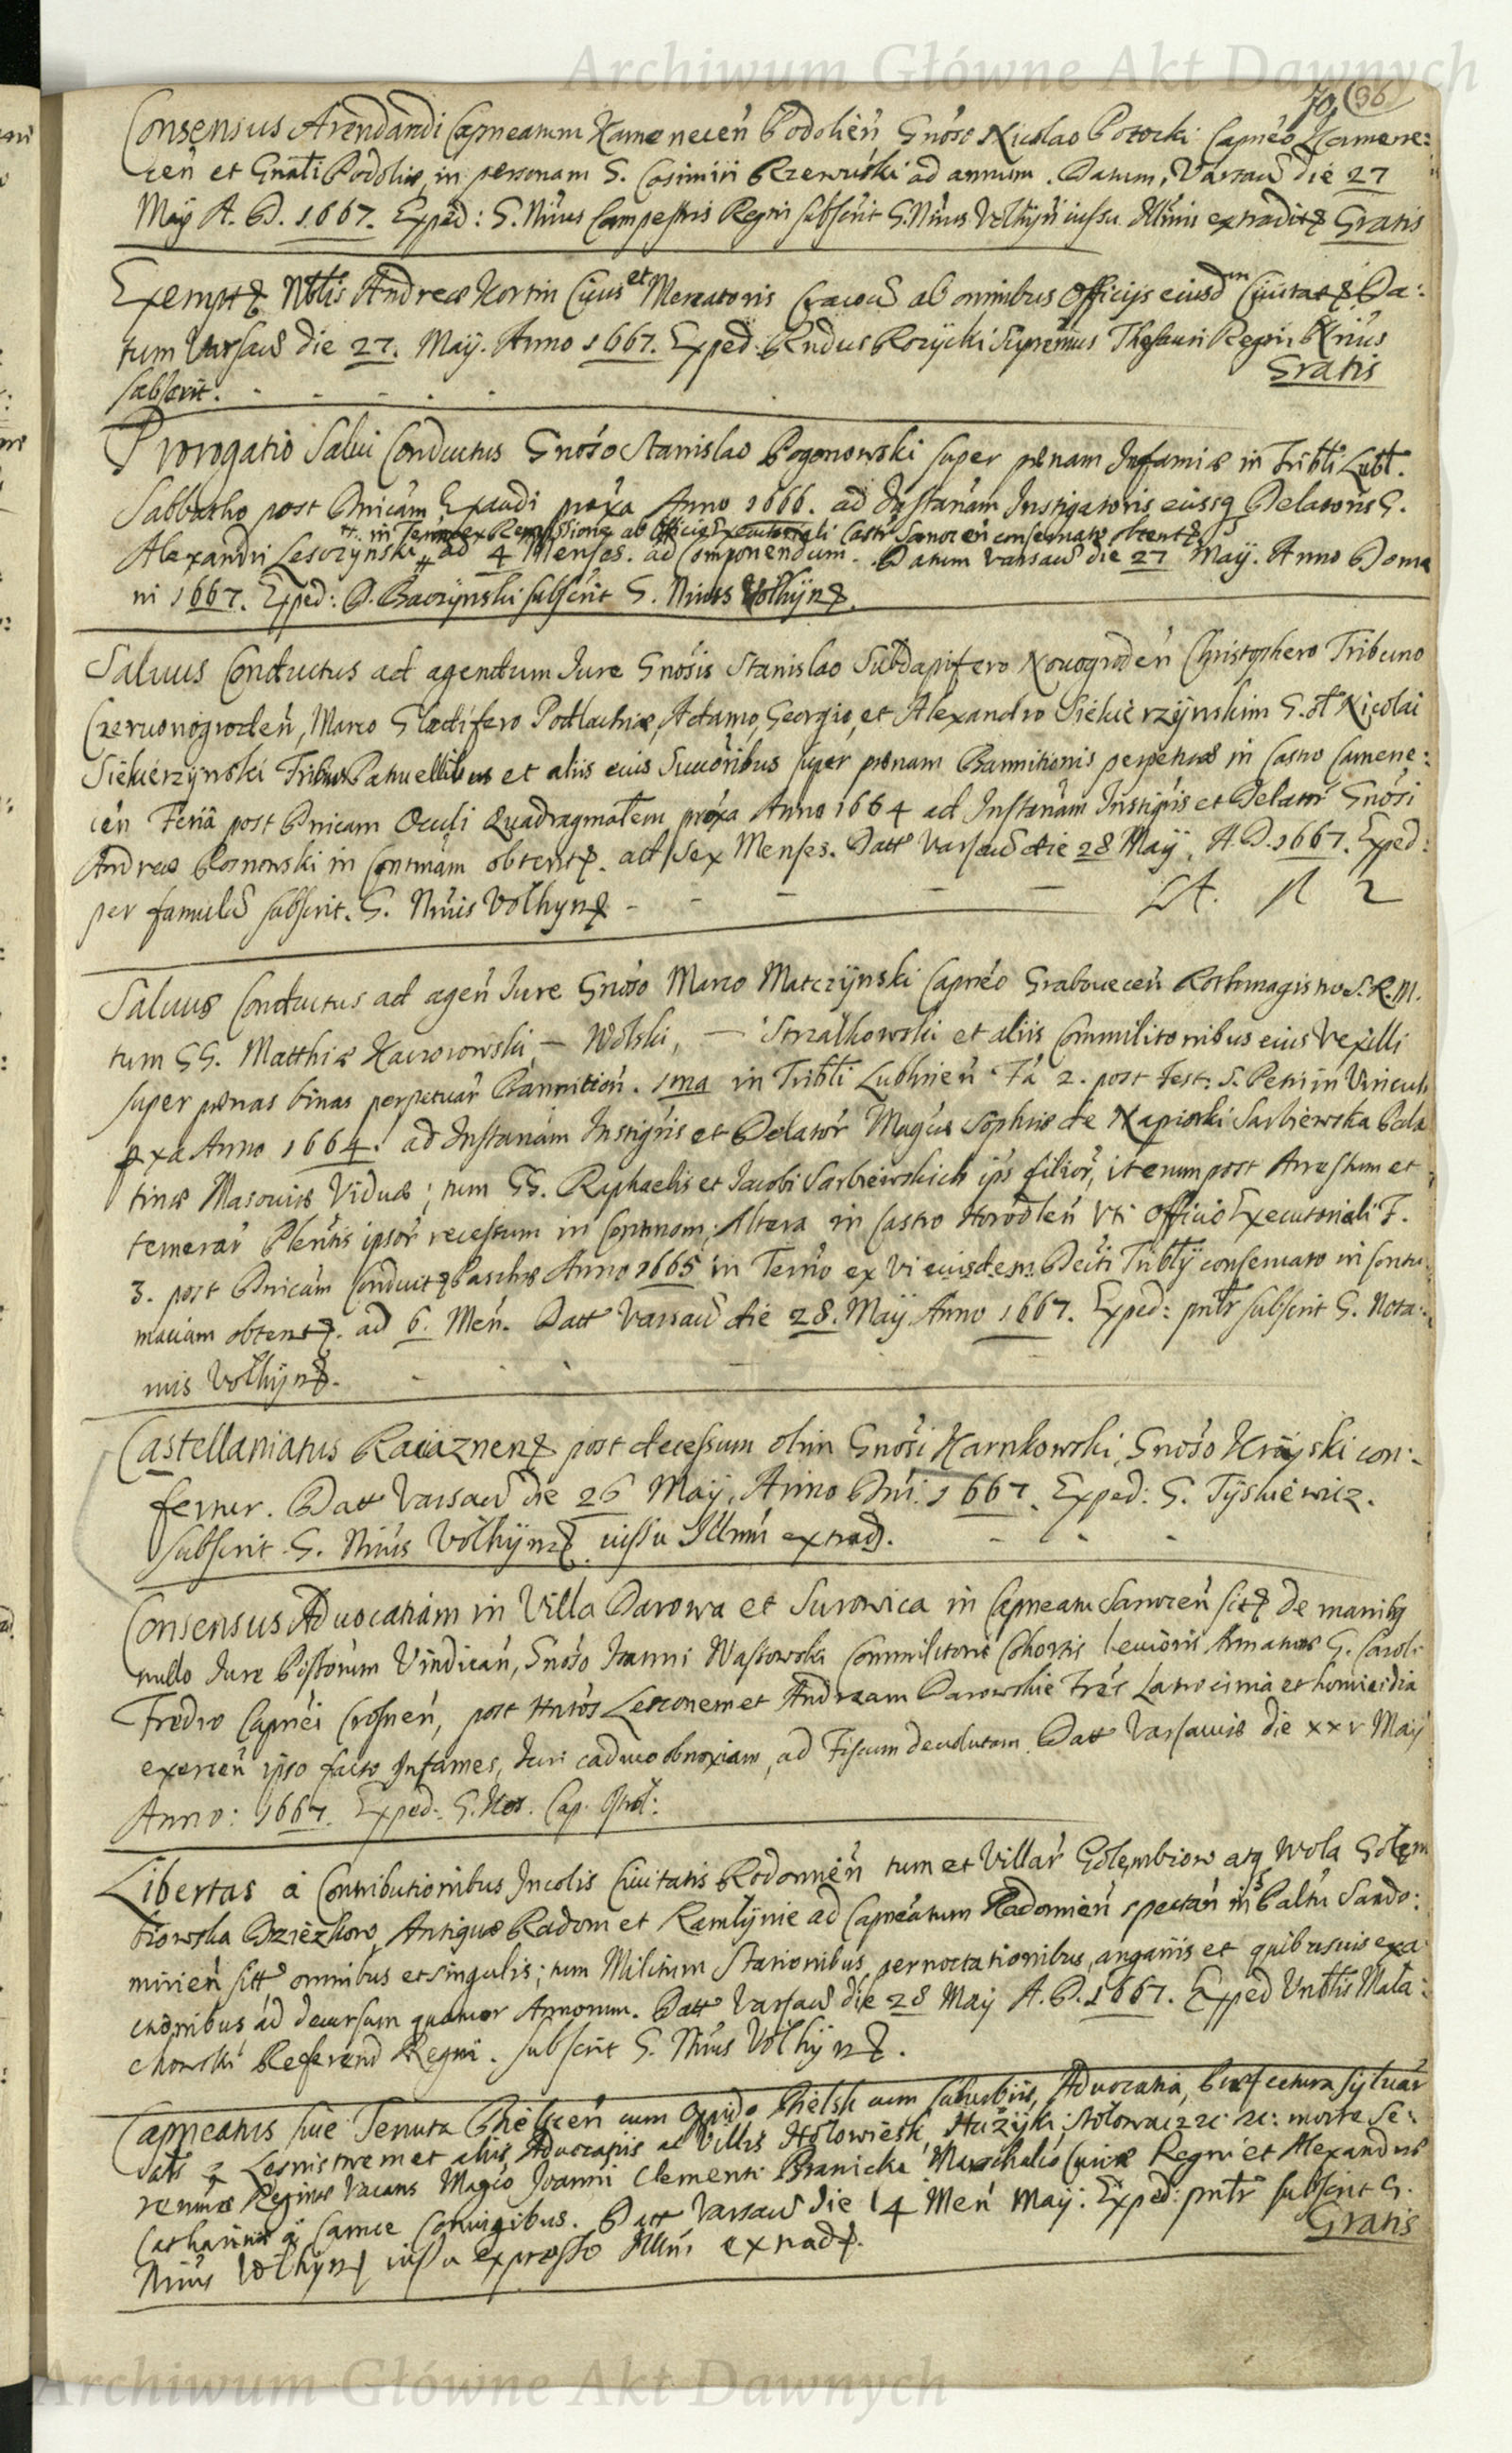 Archiwum Główne Akt Dawnych
70 (96
Consensus Arendandi Capneatum Kamenecen̄ Podolien̄ Gnōso Nicolao Potocki Capnēo Kamene:
cen̄ et Gnāli Podoliæ, in personam G. Casimiri Rzewuski ad annum. Datum, Varsaviæ die 27
Maij A. D. 1667. Exped: G. Nr̄ius Campestris Regni subscrit G. Nr̄ius Volhyn̄ iussu Illmi extradit Gratis
Exempt Nbtis Andreæ Kortin Civis et Mercatoris Cracov ab omnibus Officijs eiusdm Civitat Da:
tum Varsav die 27. Maij. Anno 1667. Exped. Rndus Rozycki Supremus Thesauri Regni Nr̄ius
subscrit. Gratis
Prorogatio Salvi Conductus Gnōso Stanislao Pogonowski super pœnam Infamiæ in Tribli Lubl.
Sabbatho post Dnicam Exaudi proxa Anno 1666. ad Instan̄am Instigatoris eiusq Delatoris G.
in Termo ex Remissione ab Officio Executoriali Castri Sanocen̄ conservato obtent
Alexandri Lesczynski ad 4 Menses. ad Componendum. Datum Varsav die 27 Maij. Anno Domi
ni 1667. Exped: D. Baczynski subscrit G. Nrius Volhyn.
Salvus Conductus ad agendum Iure Gnōsis Stanislao Subdapifero Novogroden̄ Christophero Tribuno
Czerwonogroden̄, Marco Gladifero Podlachiæ, Adamo, Georgio, et Alexandro Siekierzynskim G. ol Nicolai
Siekierzynski Tribu Patruelibus et aliis eius Succōribus super pœnam Bannitionis perpetuæ in Castro Camene:
cen̄ Feria post Dnicam Oculi Quadragmalem proxa Anno 1664 ad Instan̄am Instigris et Delator Gnōsi
Andreæ Rosnowski in Contmam obtent. ad sex Menses. Datt Varsav die 28 Maij, A. D. 1667. Exped:
per famulū subscrit. G. Nrius Volhyn - - - - Lt. N 2
Salvus Conductus ad agen̄ Iure Gnōso Marco Matczynski Capnēo Grabovecen̄ Rothmagistro S. R. M.
tum GG. Matthiæ Kaw orowski, — Wolski, — Strzałkowski et aliis Commilitonibus eius Vexilli
super pœnas binas perpetuar̄ Bannition̄. 1ma in Tribli Lublinen̄ Fa 2. post Fest: S. Petri in Vincul
pxa Anno 1664. ad Instan̄am Instigris et Delator̄ Magcæ Sophiæ de Napiorki Sarbiewska Pala
tinæ Masoviæ Viduæ; tum GG. Raphaelis et Iacobi Sarbiewskich ips filior̄, iterum post Arrestum et
temerar̄ Plentis ipsor̄ recessum in Contmam; Altera in Castro Horodlen̄ Uti Officio Executoriali F.
3. post Dnicam Conduct Paschæ Anno 1665 in Termo ex Vi eiusdem Decti Triblij conservato in Contu
maciam obtent. ad 6. Men̄. Datt Varsav die 28. Maij Anno 1667. Exped: pntr subscrit G. Nota:
rius Volhyn.
Castellaniatus Raciaznen post decessum olim Gnōsi Karnkowski, Gnōso Kryski con:
fertur. Datt Varsav die 26 Maij, Anno Dni 1667. Exped: G. Tyskiewicz.
subscrit G. Nrius Volhyn iussu Illmi extrad.
Consensus Advocatiam in Villa Darowa et Surowica in Capneatu Sanocen̄ sit De manibq
nullo Iure Possorum Vindican̄, Gnōso Ioanni Wassowski Commilitoni Cohortis levioris Armaturæ G. Caroli
Fredro Capnēi Crosnen̄, post Hntos Lesconem et Andream Darowskie Frēs Latrocinia et homicidia
exercen̄ ipso facto Infames, Iuri caduco obnoxiam, ad Fiscum devolutam Datt Varsaviæ die xxv Maij
Anno: 1667. Exped: G. Kos. Cap. Opol:
Libertas à Contributionibus Incolis Civitatis Radomien̄ tum et Villar̄ Gołembiow atq Wola Gołem
biowska Dzierzkow, Antiquo Radom et Kamlynie ad Capneatum Radomien̄ spectan̄ in Paltu Sando:
mirien̄ sitt omnibus et singulis; tum Militum Stationibus, pernoctationibus, angariis et quibusvis exa
ctionibus, ad decursum quatuor Annorum. Datt Varsav die 28 Maij A. D. 1667. Exped Vnbtis Mała:
chowski Referend Regni. subscrit G. Nrius Volhyn.
Capneatus sive Tenuta Bielscen̄ cum Oppido Bielsk cum suburbiis, Advocatia, Præfectura sylvar̄
vulg Lesnistwem et aliis Advocatiis ac Villis Hołowiesk, Stołowacz &c &c: morte Se:
renmæ Reginæ Vacans Magco Ioanni Clementi Branicki Marschalco Curiæ Regni et Alexandræ
Catharinæ à Czarnca Coniugibus. Datt Varsav die 14 Men̄ Maij: Exped: pntr subscrit G.
Nrius Volhyn iussu expresso Illmi extrad. Gratis
Archiwum Główne Akt Dawnych